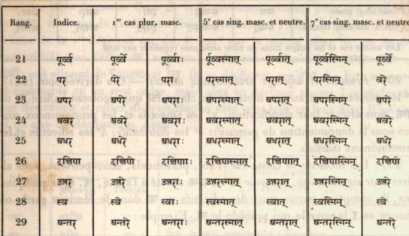 Rang. Indice. 1er cas plur. masc. 5e cas sing. masc. et neutre. 7e cas sing. masc. et neutre
21 पूर्व्व पूर्व्वे पूर्व्वाः पूर्व्वस्मात् पूर्व्वात् पूर्व्वस्मिन् पूर्व्वे
22 पर परे पराः परस्मात् परात् परस्मिन् परे
23 अपर अपरे अपराः अपरस्मात् अपरात् अपरस्मिन् अपरे
24 अवर अवरे अवराः अवरस्मात् अवरात् अवरस्मिन् अवरे
25 अधर अधरे अधराः अधरस्मात् अधरात् अधरस्मिन् अधरे
26 दक्षिण दक्षिणे दक्षिणाः दक्षिणस्मात् दक्षिणात् दक्षिणस्मिन् दक्षिणे
27 उत्तर उत्तरे उत्तराः उत्तरस्मात् उत्तरात् उत्तरस्मिन् उत्तरे
28 स्व स्वे स्वाः स्वस्मात् स्वात् स्वस्मिन् स्वे
29 अन्तर अन्तरे अन्तराः अन्तरस्मात् अन्तरात् अन्तरस्मिन् अन्तरे